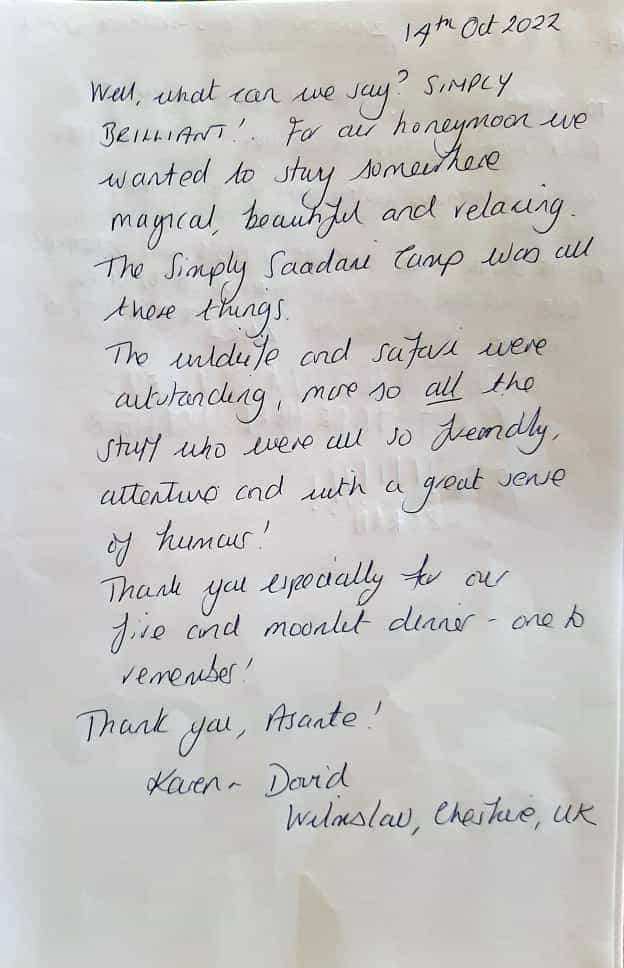 14th Oct 2022
Well, what can we say? SIMPLY
BRILLIANT!. For our honeymoon we
wanted to stay somewhere
magical, beautiful and relaxing.
The Simply Saadani Camp was all
these things.
The wildlife and safari were
outstanding, more so all the
staff who were all so friendly,
attentive and with a great sense
of humour!
Thank you especially for our
fire and moonlit dinner - one to
remember!
Thank you, Asante!
Karen ~ David
Wilmslow, Cheshire, UK